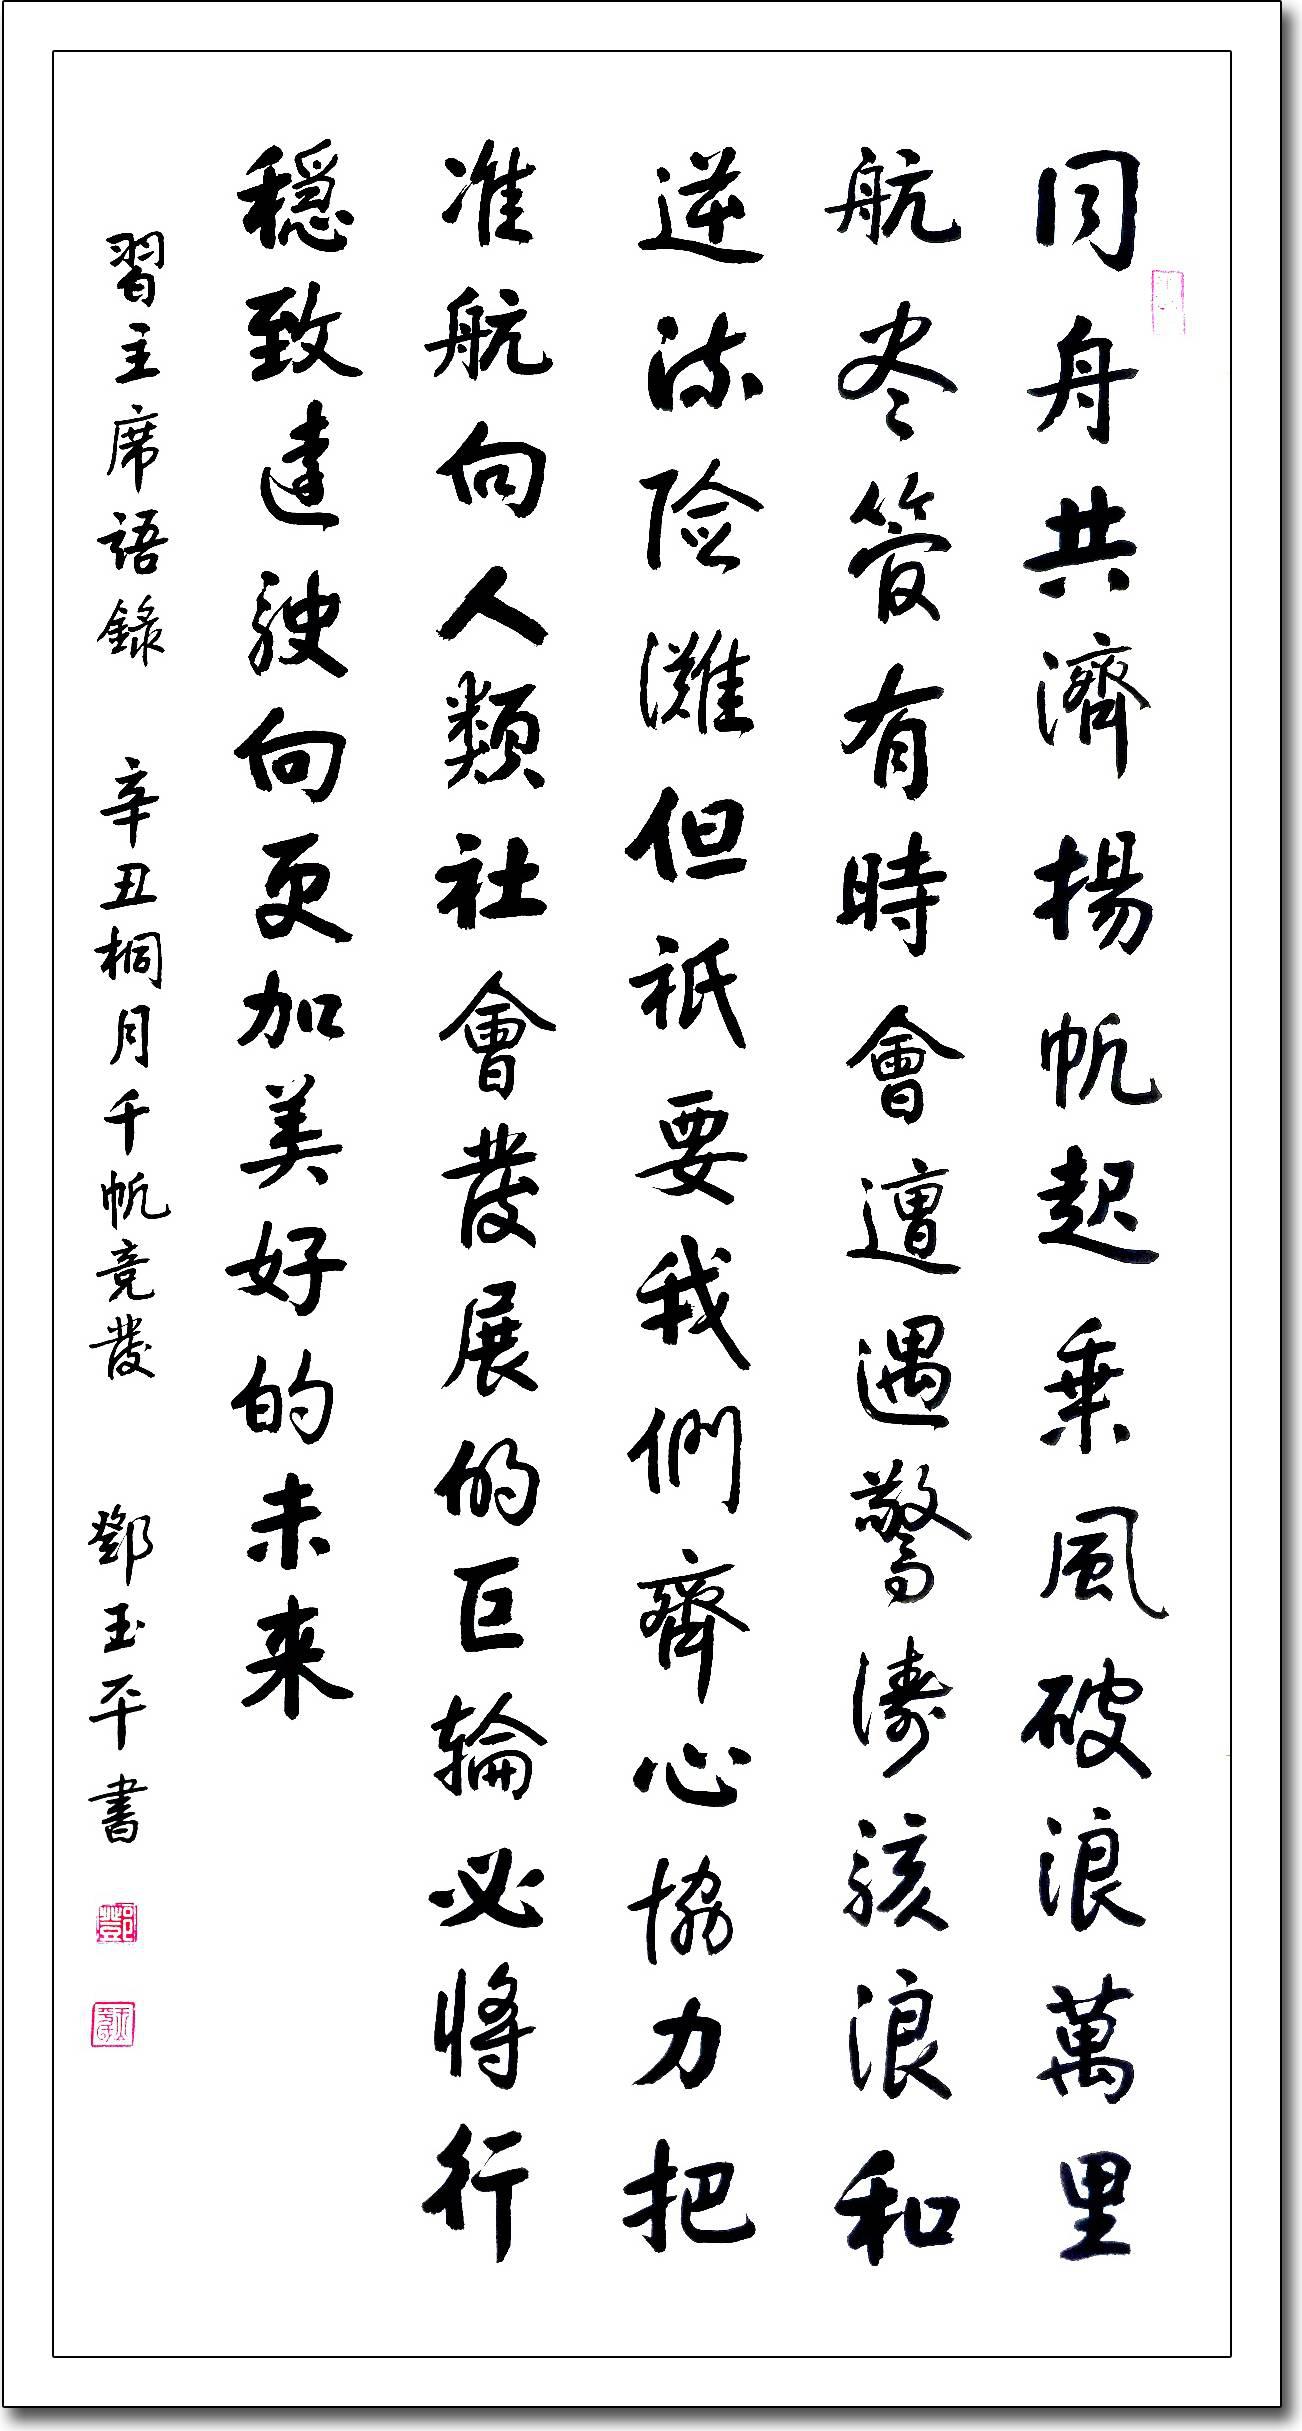 同舟共濟揚帆起乘風破浪萬里
航尽管有時會遭遇驚濤骇浪和
逆流险灘但祇要我們齊心協力把
准航向人類社會發展的巨輪必將行
穩致遠驶向更加美好的未来
習主席語錄 辛丑桐月千帆竞發 鄧玉平書